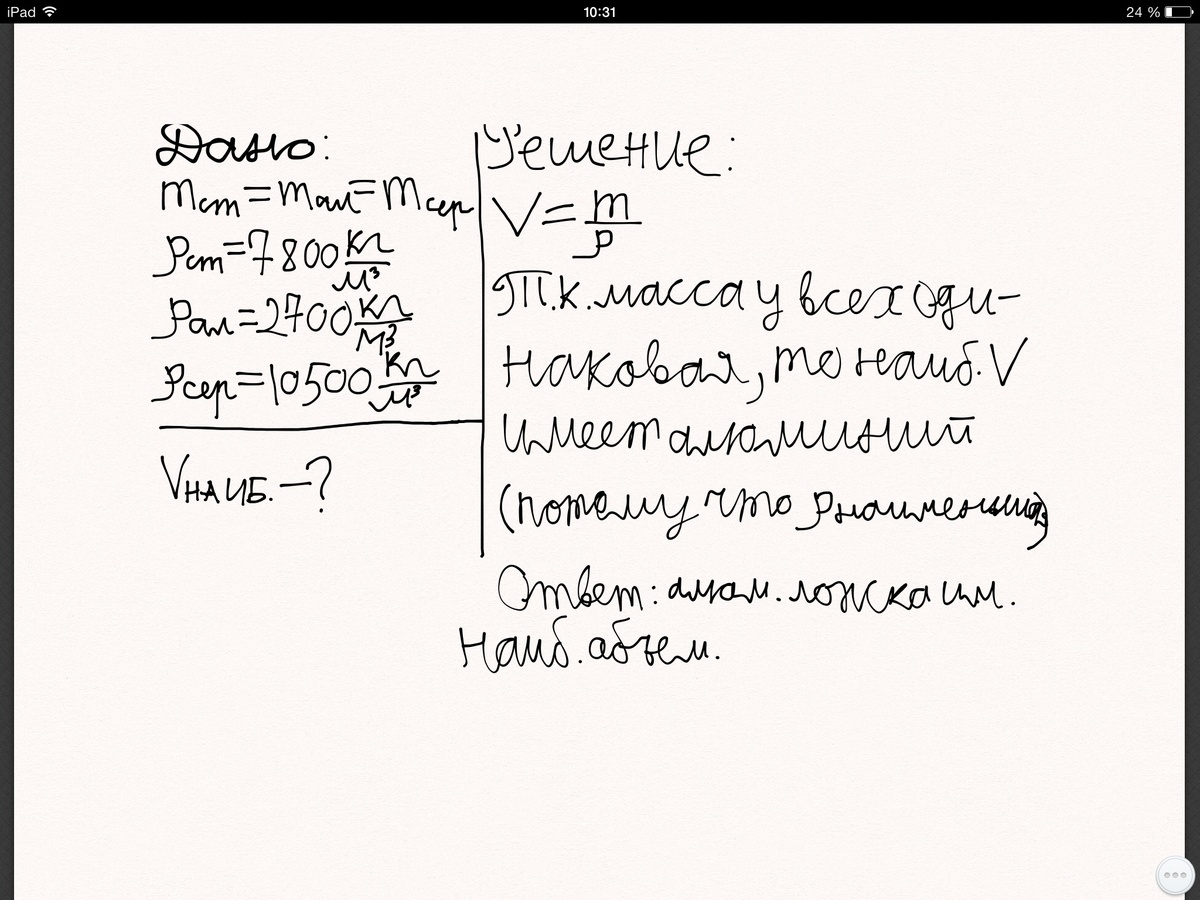 iPad 10:31 24 %
Дано:
mст=mал=mсер
ρст=7800 кг/м³
ρал=2700 кг/м³
ρсер=10500 кг/м³
Vнаиб.–?
Решение:
V=m/ρ
Т.к. масса у всех оди-
наковая, то наиб. V
имеет алюминий
(потому что ρ наименьшая)
Ответ: алюм. ложка им.
наиб. абъем.